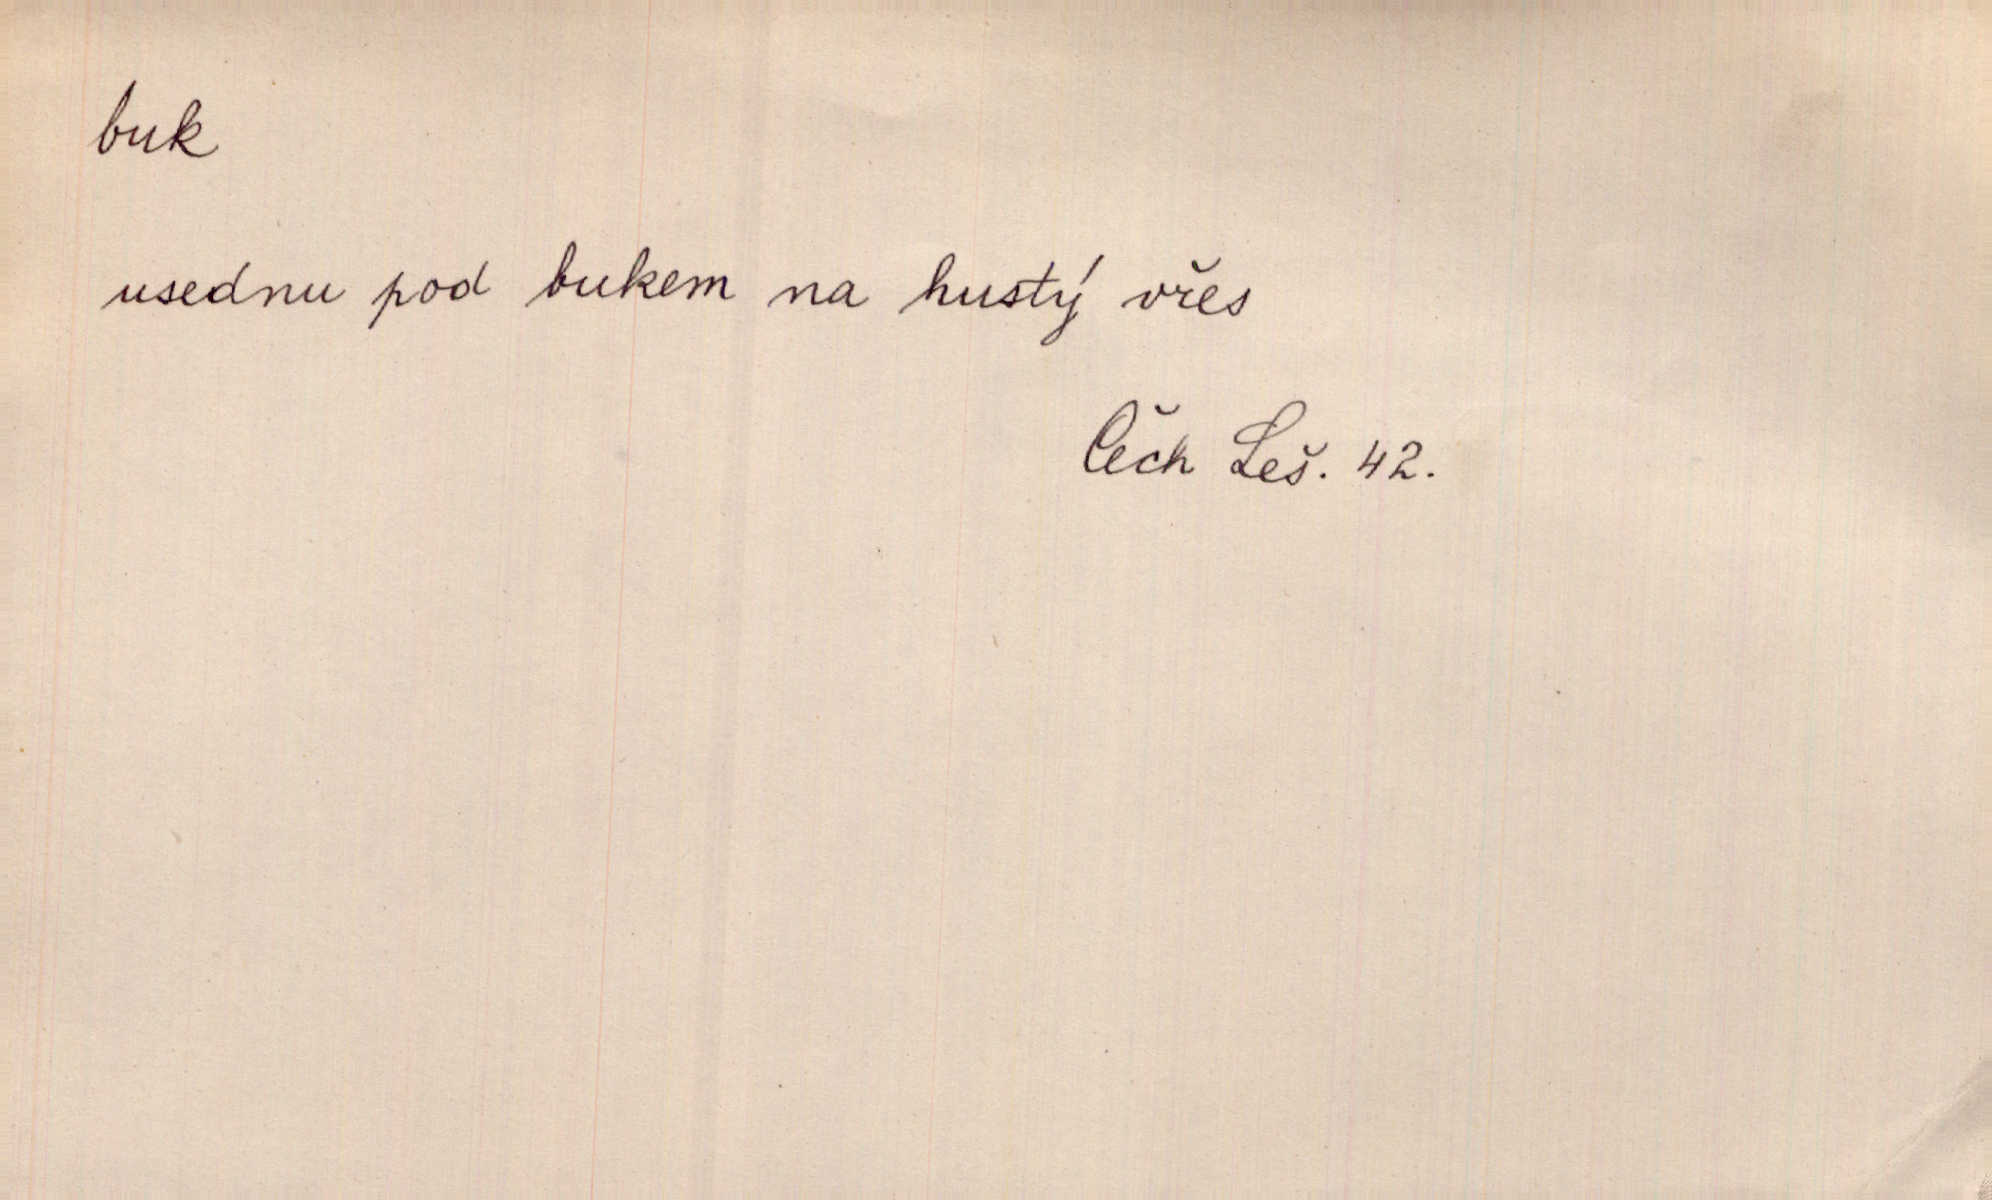 buk
usednu pod bukem na hustý vřes
Čech Leš. 42.